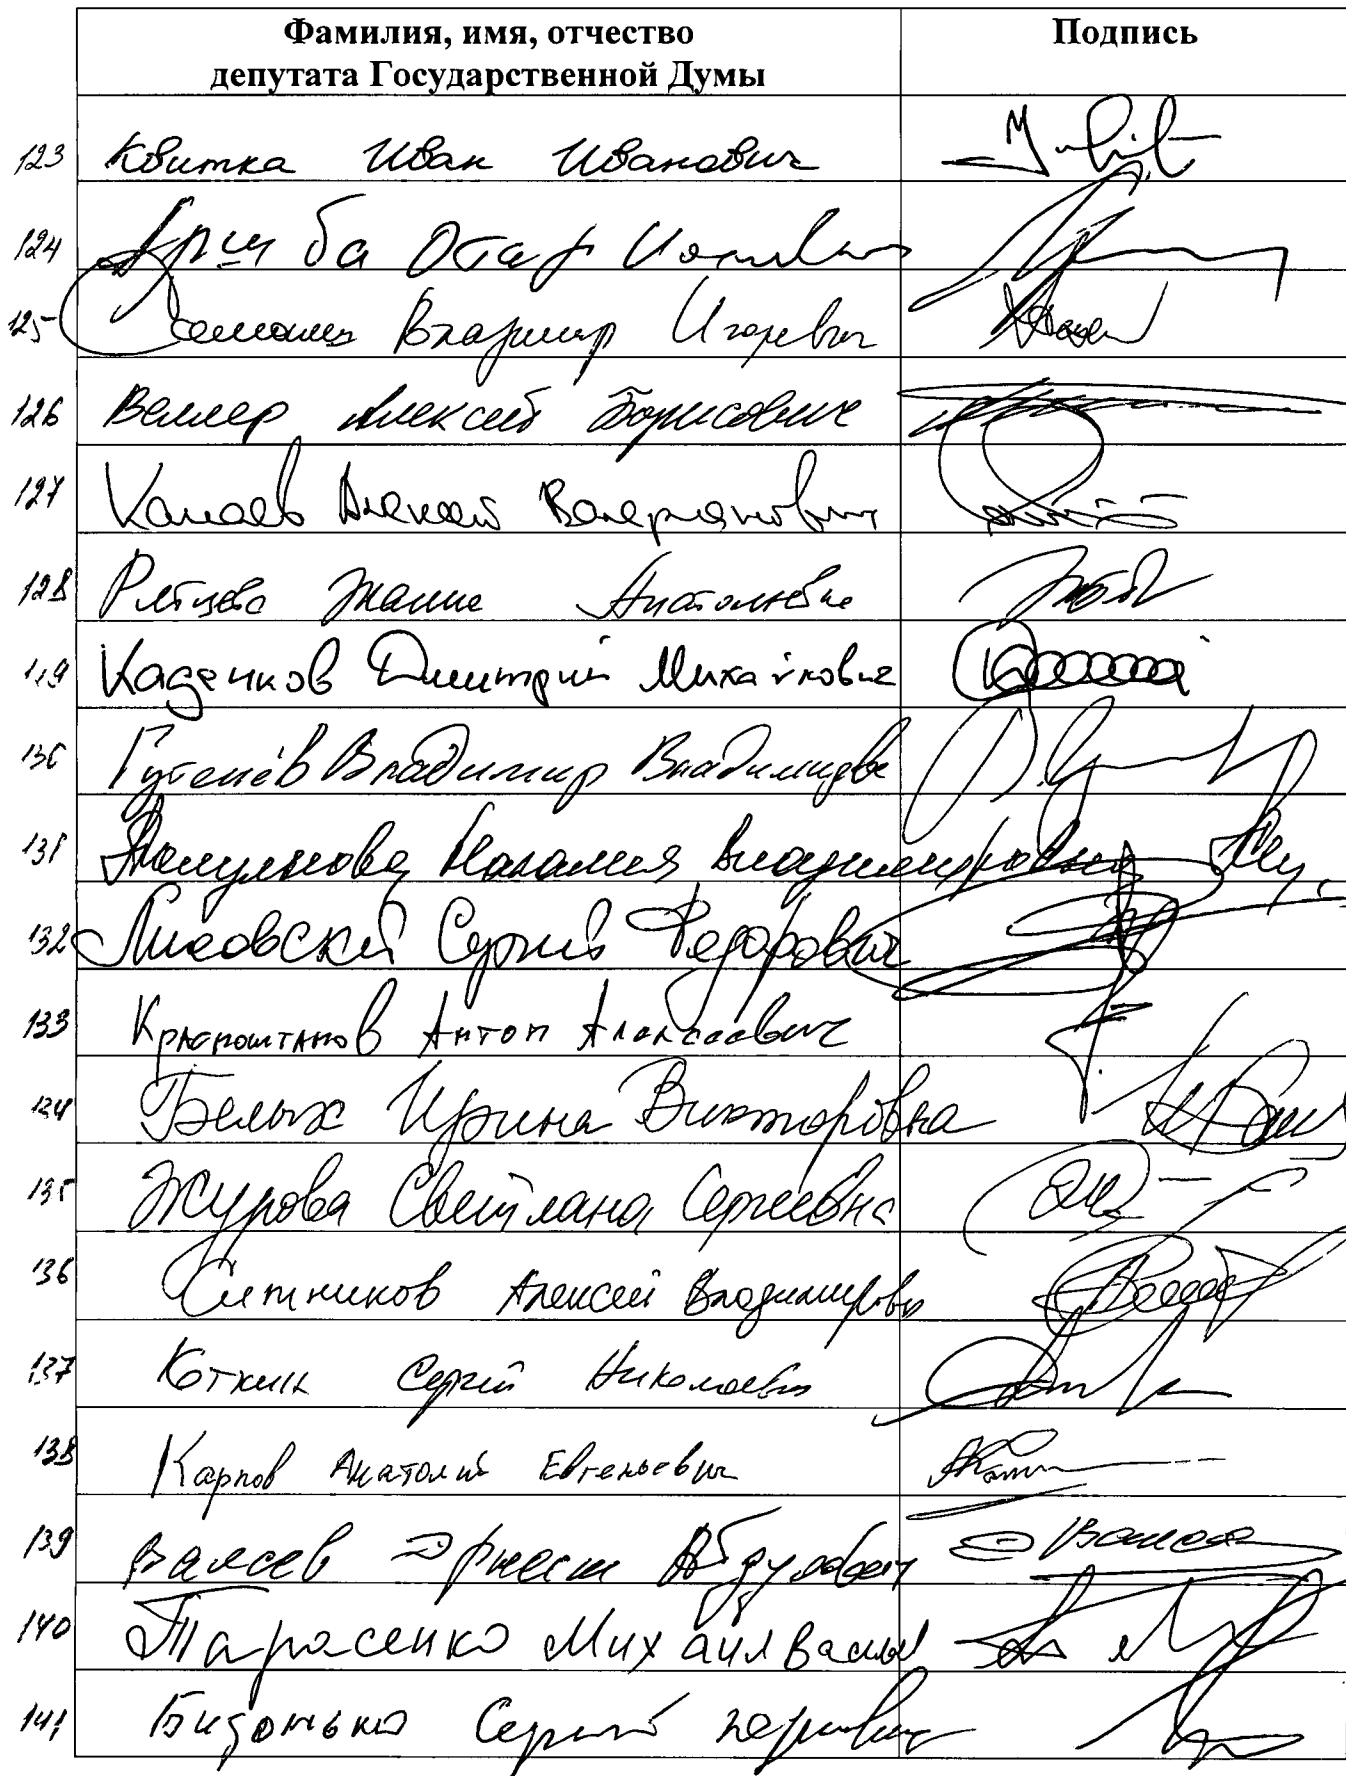 Фамилия, имя, отчество
депутата Государственной Думы
Подпись
123 Квитка Иван Иванович
124 Аршба Отар Ионович
125 Владимир Игоревич
126 Веллер Алексей Борисович
127 Канаев Алексей Валерианович
128 Рябцева Жанна Анатольевна
129 Каденков Дмитрий Михайлович
130 Гутенёв Владимир Владимирович
131 Полуянова Наталия Владимировна
132 Лисовский Сергей Федорович
133 Красноштанов Антон Алексеевич
134 Белых Ирина Викторовна
135 Журова Светлана Сергеевна
136 Ситников Алексей Владимирович
137 Коткин Сергей Николаевич
138 Карпов Анатолий Евгеньевич
139 Валеев Эрнест Абдулович
140 Тарасенко Михаил Васил
141 Бидонько Сергей